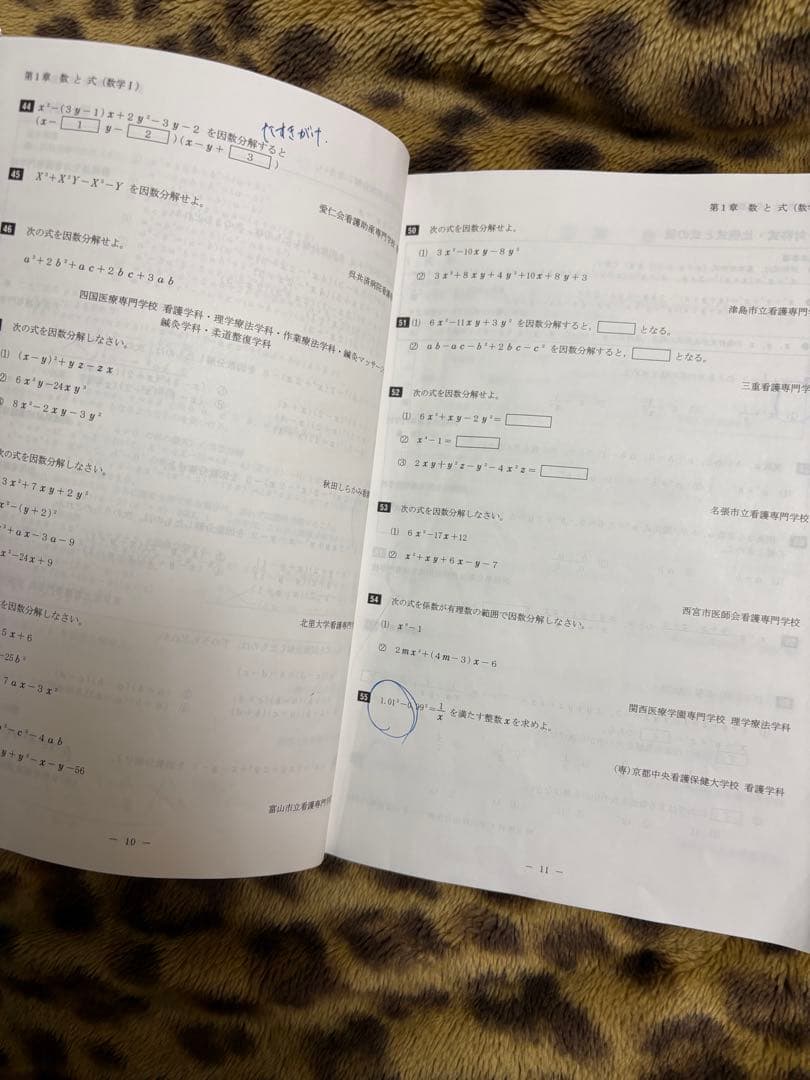 第1章 数と式（数学Ⅰ）
44 x²−(3y−1)x+2y²−3y−2 を因数分解すると
たすきがけ.
(x− 1 y− 2 )(x−y+ 3 )
45 X³+X²Y−X²−Y を因数分解せよ。
愛仁会看護助産専門学校
46 次の式を因数分解せよ。
呉共済病院看護
a²+2b²+ac+2bc+3ab
四国医療専門学校 看護学科・理学療法学科・作業療法学科・鍼灸マッサージ
鍼灸学科・柔道整復学科
次の式を因数分解しなさい。
(1) (x−y)²+yz−zx
6x³y−24xy³
8x²−2xy−3y²
秋田しらかみ看護
次の式を因数分解しなさい。
3x²+7xy+2y²
x²−(y+2)²
²+ax−3a−9
x²−24x+9
北里大学看護専門
を因数分解しなさい。
5x+6
−25b²
7ax−3x²
²−c²−4ab
y+y²−x−y−56
富山市立看護専門
— 10 —
第1章 数と式（数学
50 次の式を因数分解せよ。
(1) 3x²−10xy−8y²
(2) 3x²+8xy+4y²+10x+8y+3
津島市立看護専門
51 (1) 6x²−11xy+3y² を因数分解すると， となる。
(2) ab−ac−b²+2bc−c² を因数分解すると， となる。
三重看護専門学
52 次の式を因数分解せよ。
(1) 6x²+xy−2y²=
(2) x⁴−1=
(3) 2xy+y²z−y²−4x²z=
名張市立看護専門学校
53 次の式を因数分解しなさい。
(1) 6x²−17x+12
(2) x²+xy+6x−y−7
西宮市医師会看護専門学校
54 次の式を係数が有理数の範囲で因数分解しなさい。
(1) −1
(2) 2mx²+(4m−3)x−6
関西医療学園専門学校 理学療法学科
55 1.01²−0.99²=1/x を満たす整数xを求めよ。
(専)京都中央看護保健大学校 看護学科
— 11 —